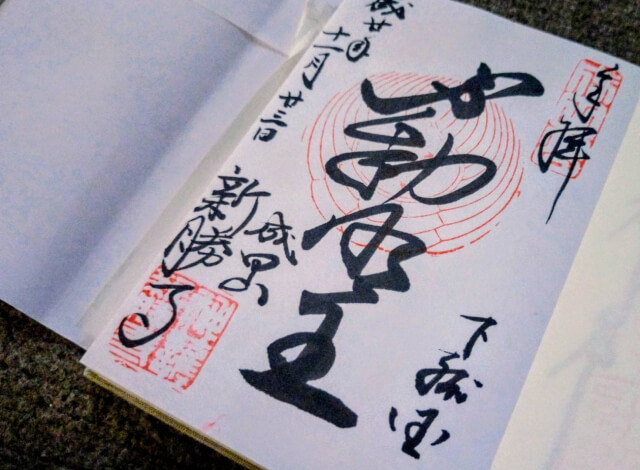 奉拝
下総国
不動明王
成廿年
十一月廿三日
成田山
新勝寺